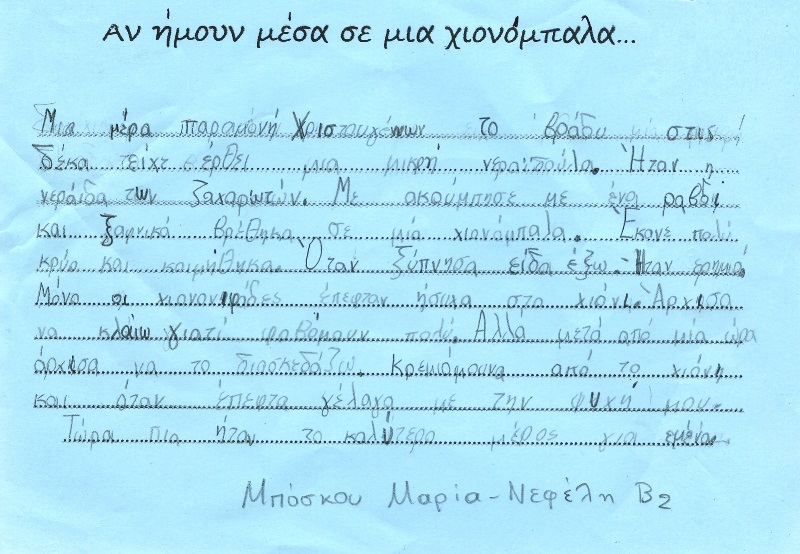 Αν ήμουν μέσα σε μια χιονόμπαλα...
Μια μέρα παραμονή Χριστουγέννων το βράδυ στις
δέκα είχε έρθει μια μικρή νεραϊδούλα. Ήταν η
νεράιδα των ζαχαρωτών. Με ακούμπησε με ένα ραβδί
και ξαφνικά βρέθηκα σε μιά χιονόμπαλα. Έκανε πολύ
κρύο και κοιμήθηκα. Όταν ξύπνησα είδα έξω. Ήταν ερημιά
Μόνο οι χιονονιφάδες έπεφταν ήσυχα στο χιόνι. Άρχισα
να κλαίω γιατί φοβόμουν πολύ. Αλλα μετά από μία ώρα
άρχησα να το διασκεδάζω. Κρεμιόμουνα από το χιόνη
και όταν έπεφτα γέλαγα με την ψυχή μου.
Τώρα πια ήταν το καλύτερο μέρος για εμένα.
Μπόσκου Μαρία-Νεφέλη Β2